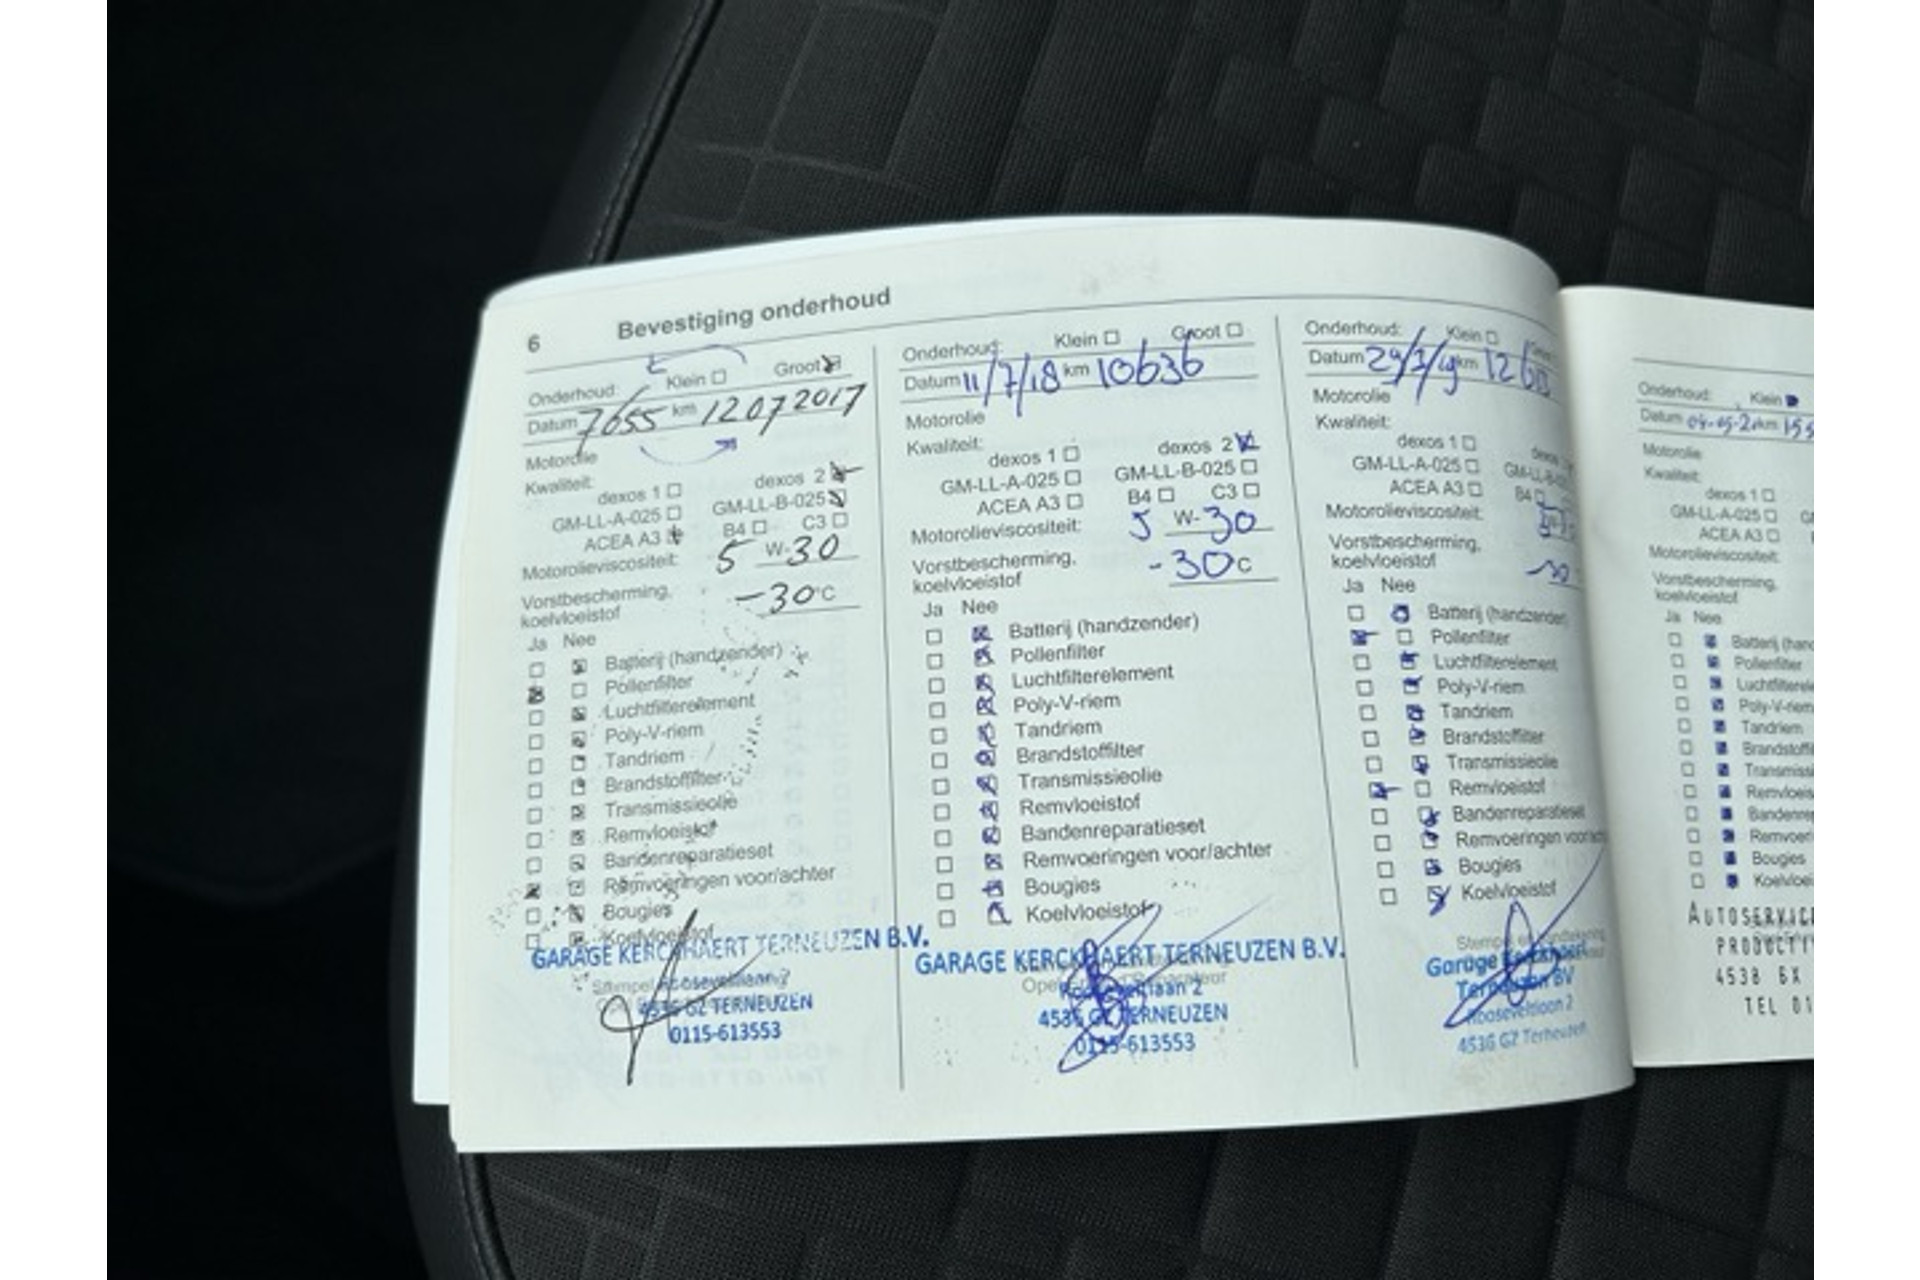 6 Bevestiging onderhoud
Onderhoud: Klein Groot
Datum 7655 km 12072017
Motorolie
Kwaliteit:
dexos 1 dexos 2
GM-LL-A-025 GM-LL-B-025
ACEA A3 B4 C3
Motorolieviscositeit: 5 W-30
Vorstbescherming, koelvloeistof -30°C
Ja Nee
Batterij (handzender)
Pollenfilter
Luchtfilterelement
Poly-V-riem
Tandriem
Brandstoffilter
Transmissieolie
Remvloeistof
Bandenreparatieset
Remvoeringen voor/achter
Bougies
Koelvloeistof
GARAGE KERCKHAERT TERNEUZEN B.V.
Stempel
Rooseveltlaan 2
4536 GZ TERNEUZEN
0115-613553
Onderhoud: Klein Groot
Datum 11/7/18 km 10636
Motorolie
Kwaliteit:
dexos 1 dexos 2
GM-LL-A-025 GM-LL-B-025
ACEA A3 B4 C3
Motorolieviscositeit: 5 W-30
Vorstbescherming, koelvloeistof -30°C
Ja Nee
Batterij (handzender)
Pollenfilter
Luchtfilterelement
Poly-V-riem
Tandriem
Brandstoffilter
Transmissieolie
Remvloeistof
Bandenreparatieset
Remvoeringen voor/achter
Bougies
Koelvloeistof
GARAGE KERCKHAERT TERNEUZEN B.V.
Rooseveltlaan 2
4536 GZ TERNEUZEN
0115-613553
Onderhoud: Klein
Datum km
Motorolie
Kwaliteit:
dexos 1 dexos
GM-LL-A-025 GM-LL-B-025
ACEA A3 B4
Motorolieviscositeit:
Vorstbescherming, koelvloeistof -30
Ja Nee
Batterij (handzender)
Pollenfilter
Luchtfilterelement
Poly-V-riem
Tandriem
Brandstoffilter
Transmissieolie
Remvloeistof
Bandenreparatieset
Remvoeringen voor/ach
Bougies
Koelvloeistof
Garage Kerckhaert
Terneuzen BV
Rooseveltlaan 2
4536 GZ Terneuzen
Onderhoud: Klein
Datum km
Motorolie
Kwaliteit:
dexos 1
GM-LL-A-025
ACEA A3
Motorolieviscositeit:
Vorstbescherming, koelvloeistof
Ja Nee
Batterij (hand
Pollenfilter
Luchtfilterele
Poly-V-riem
Tandriem
Brandstoffi
Transmissi
Remvloeis
Bandenre
Remvoeri
Bougies
Koelvloei
AUTOSERVICE
PRODUCTI
4538 BX
TEL 01